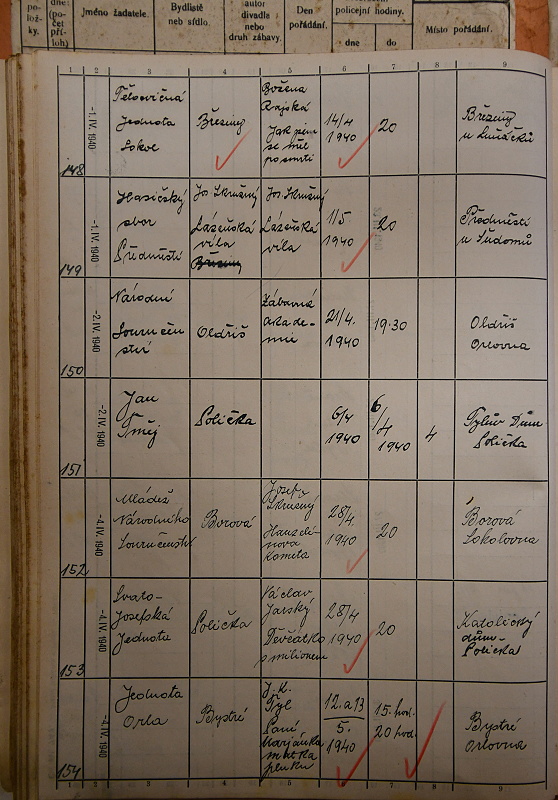 po-
lož-
ky.
dne:
(po-
čet
pří-
loh)
Jméno žadatele.
Bydliště
neb sídlo.
autor
divadla
nebo
druh zábavy.
Den
pořádání.
policejní hodiny.
dne do
Místo pořádání.
1 2 3 4 5 6 7 8 9
148
-1. IV. 1940
Tělocvičná
Jednota
Sokol
Březiny
Božena
Rajská
Jak jsem
se měl
po smrti
14/4
1940
20
Březiny
149
-1. IV. 1940
Hasičský
sbor
Předměstí
Jos. Skružný
Lázeňská
vila
Březiny
Jos. Skružný
Lázeňská
vila
1/5
1940
20
Předměstí
150
-2. IV. 1940
Národní
Souručen
ství
Oldřiš
Zábavná
akade-
mie
21/4.
1940
19·30
Oldřiš
Orlovna
151
-2. IV. 1940
Jan
Polička
6/4
1940
6/4
1940
4
Tylův Dům
Polička
152
-4. IV. 1940
Mládež
Národního
Souručenství
Borová
Josef
Skružný
Kometa
28/4
1940
20
Borová
Sokolovna
153
-4. IV. 1940
Svato-
Josefská
Jednota
Polička
Václav
Jarský
Děvčátko
s milionem
28/4
1940
20
Katolický
dům-
Polička
154
-4. IV. 1940
Jednota
Orla
Bystré
J. K.
Tyl
Paní
Marjánka
matka
pluku
12. a 13
5.
1940
15. hod.
20 hod.
Bystré
Orlovna
1 2 3 4 5 6 7 8 9